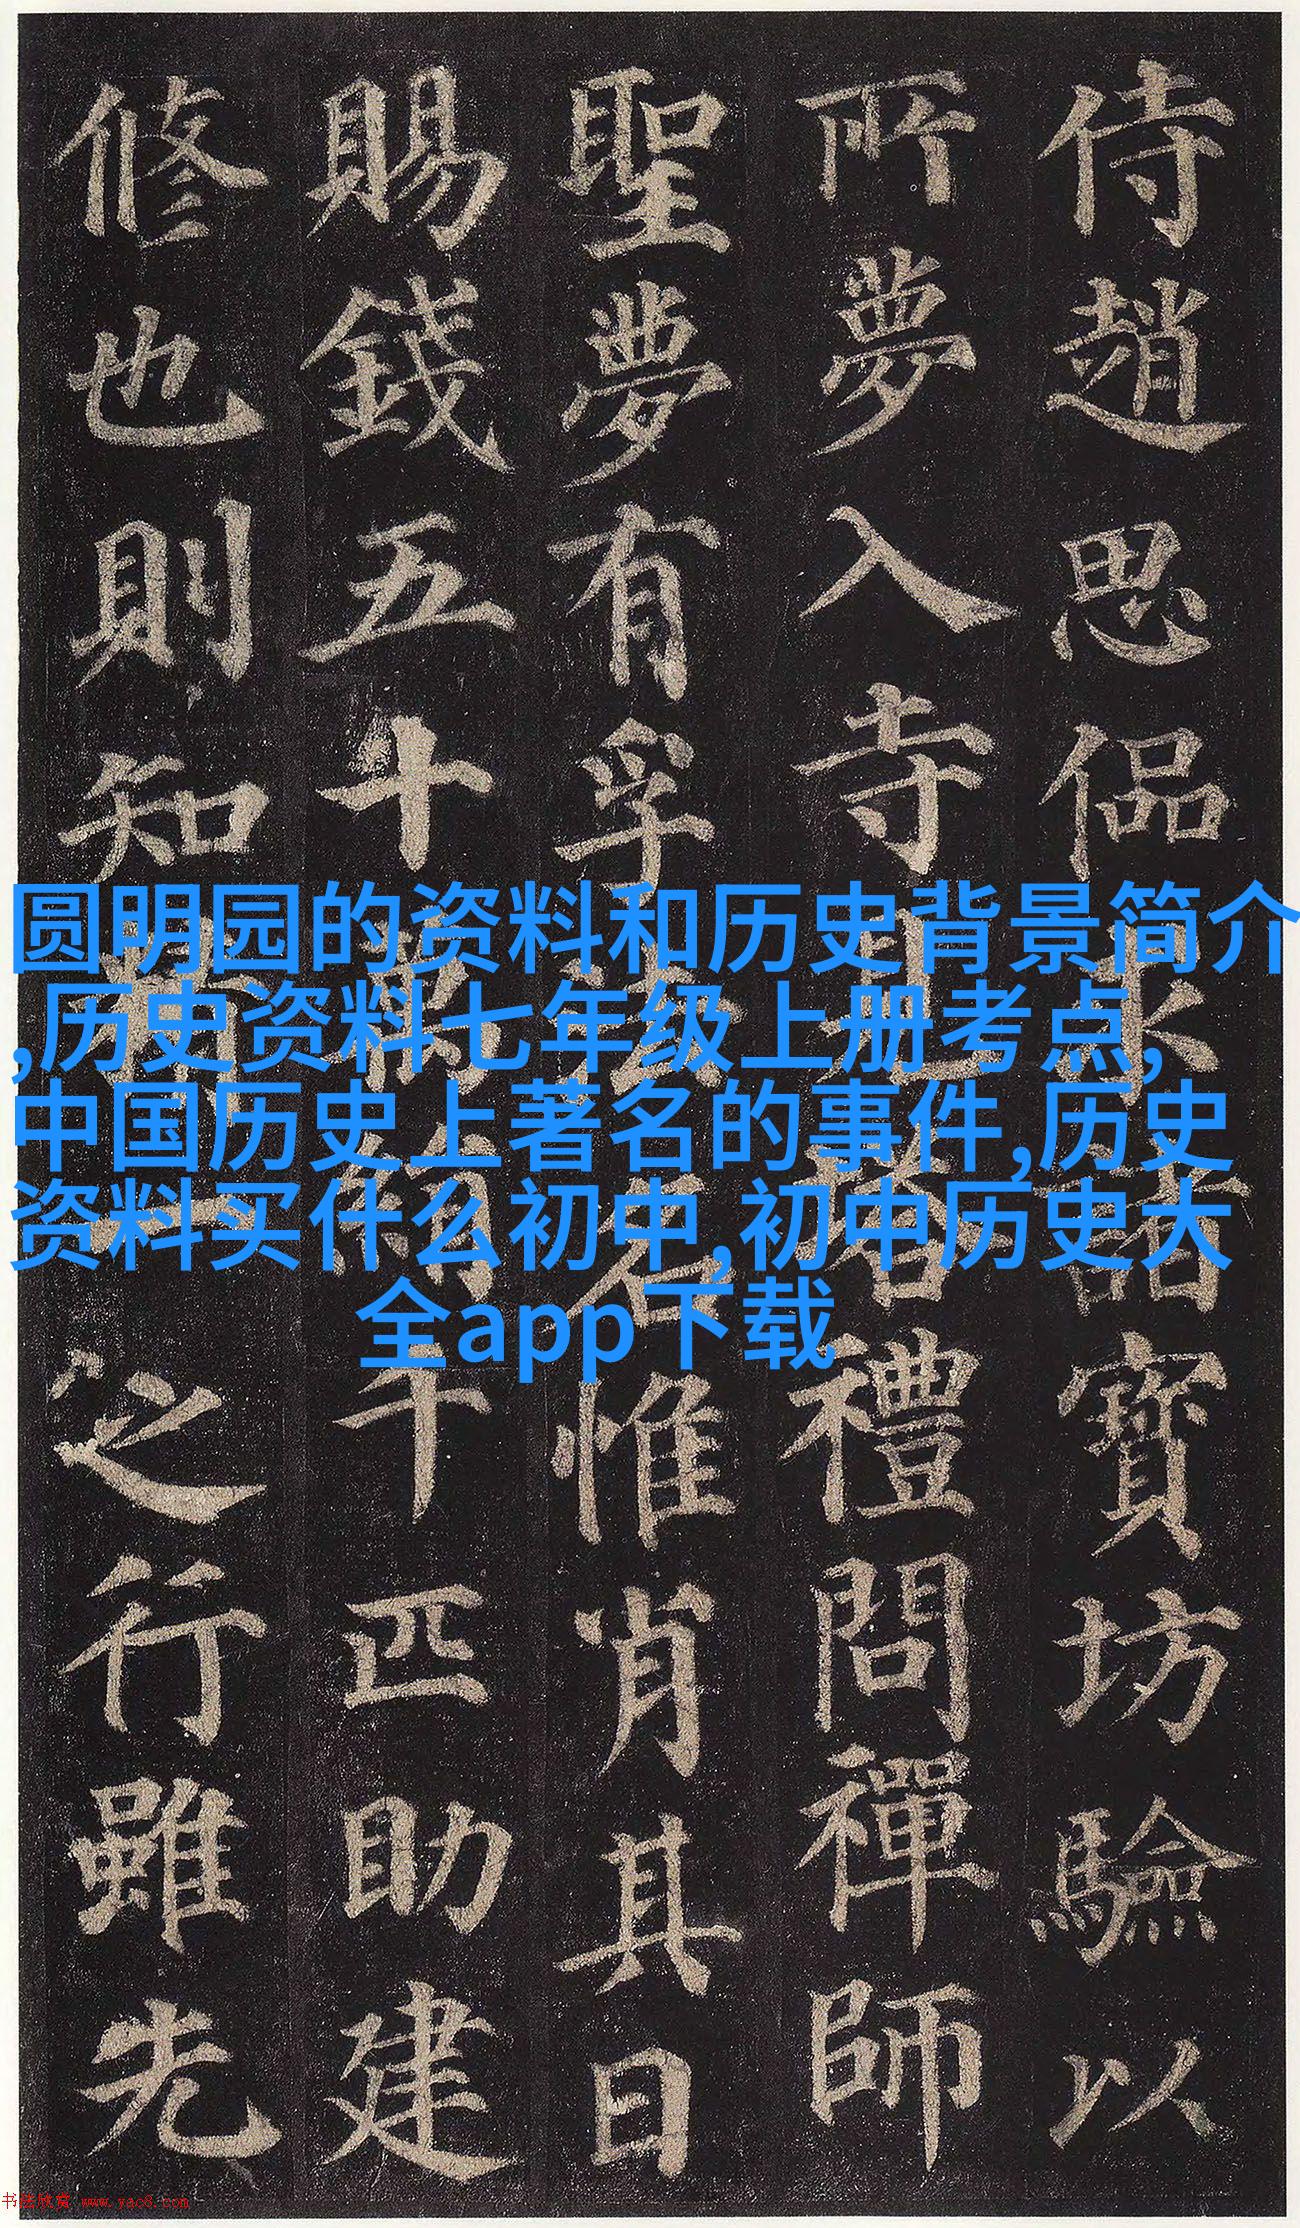 侍趙思偘求諸寶坊驗以
所夢入寺塔禮問禪師
聖夢有孚名惟肖其日
賜錢五十萬絹千匹助建
修也則知之行雖先
圆明园的资料和历史背景简介
,历史资料七年级上册考点,
中国历史上著名的事件,历史
资料买什么初中,初中历史大
全app下载
书法欣赏 www.yac8.com